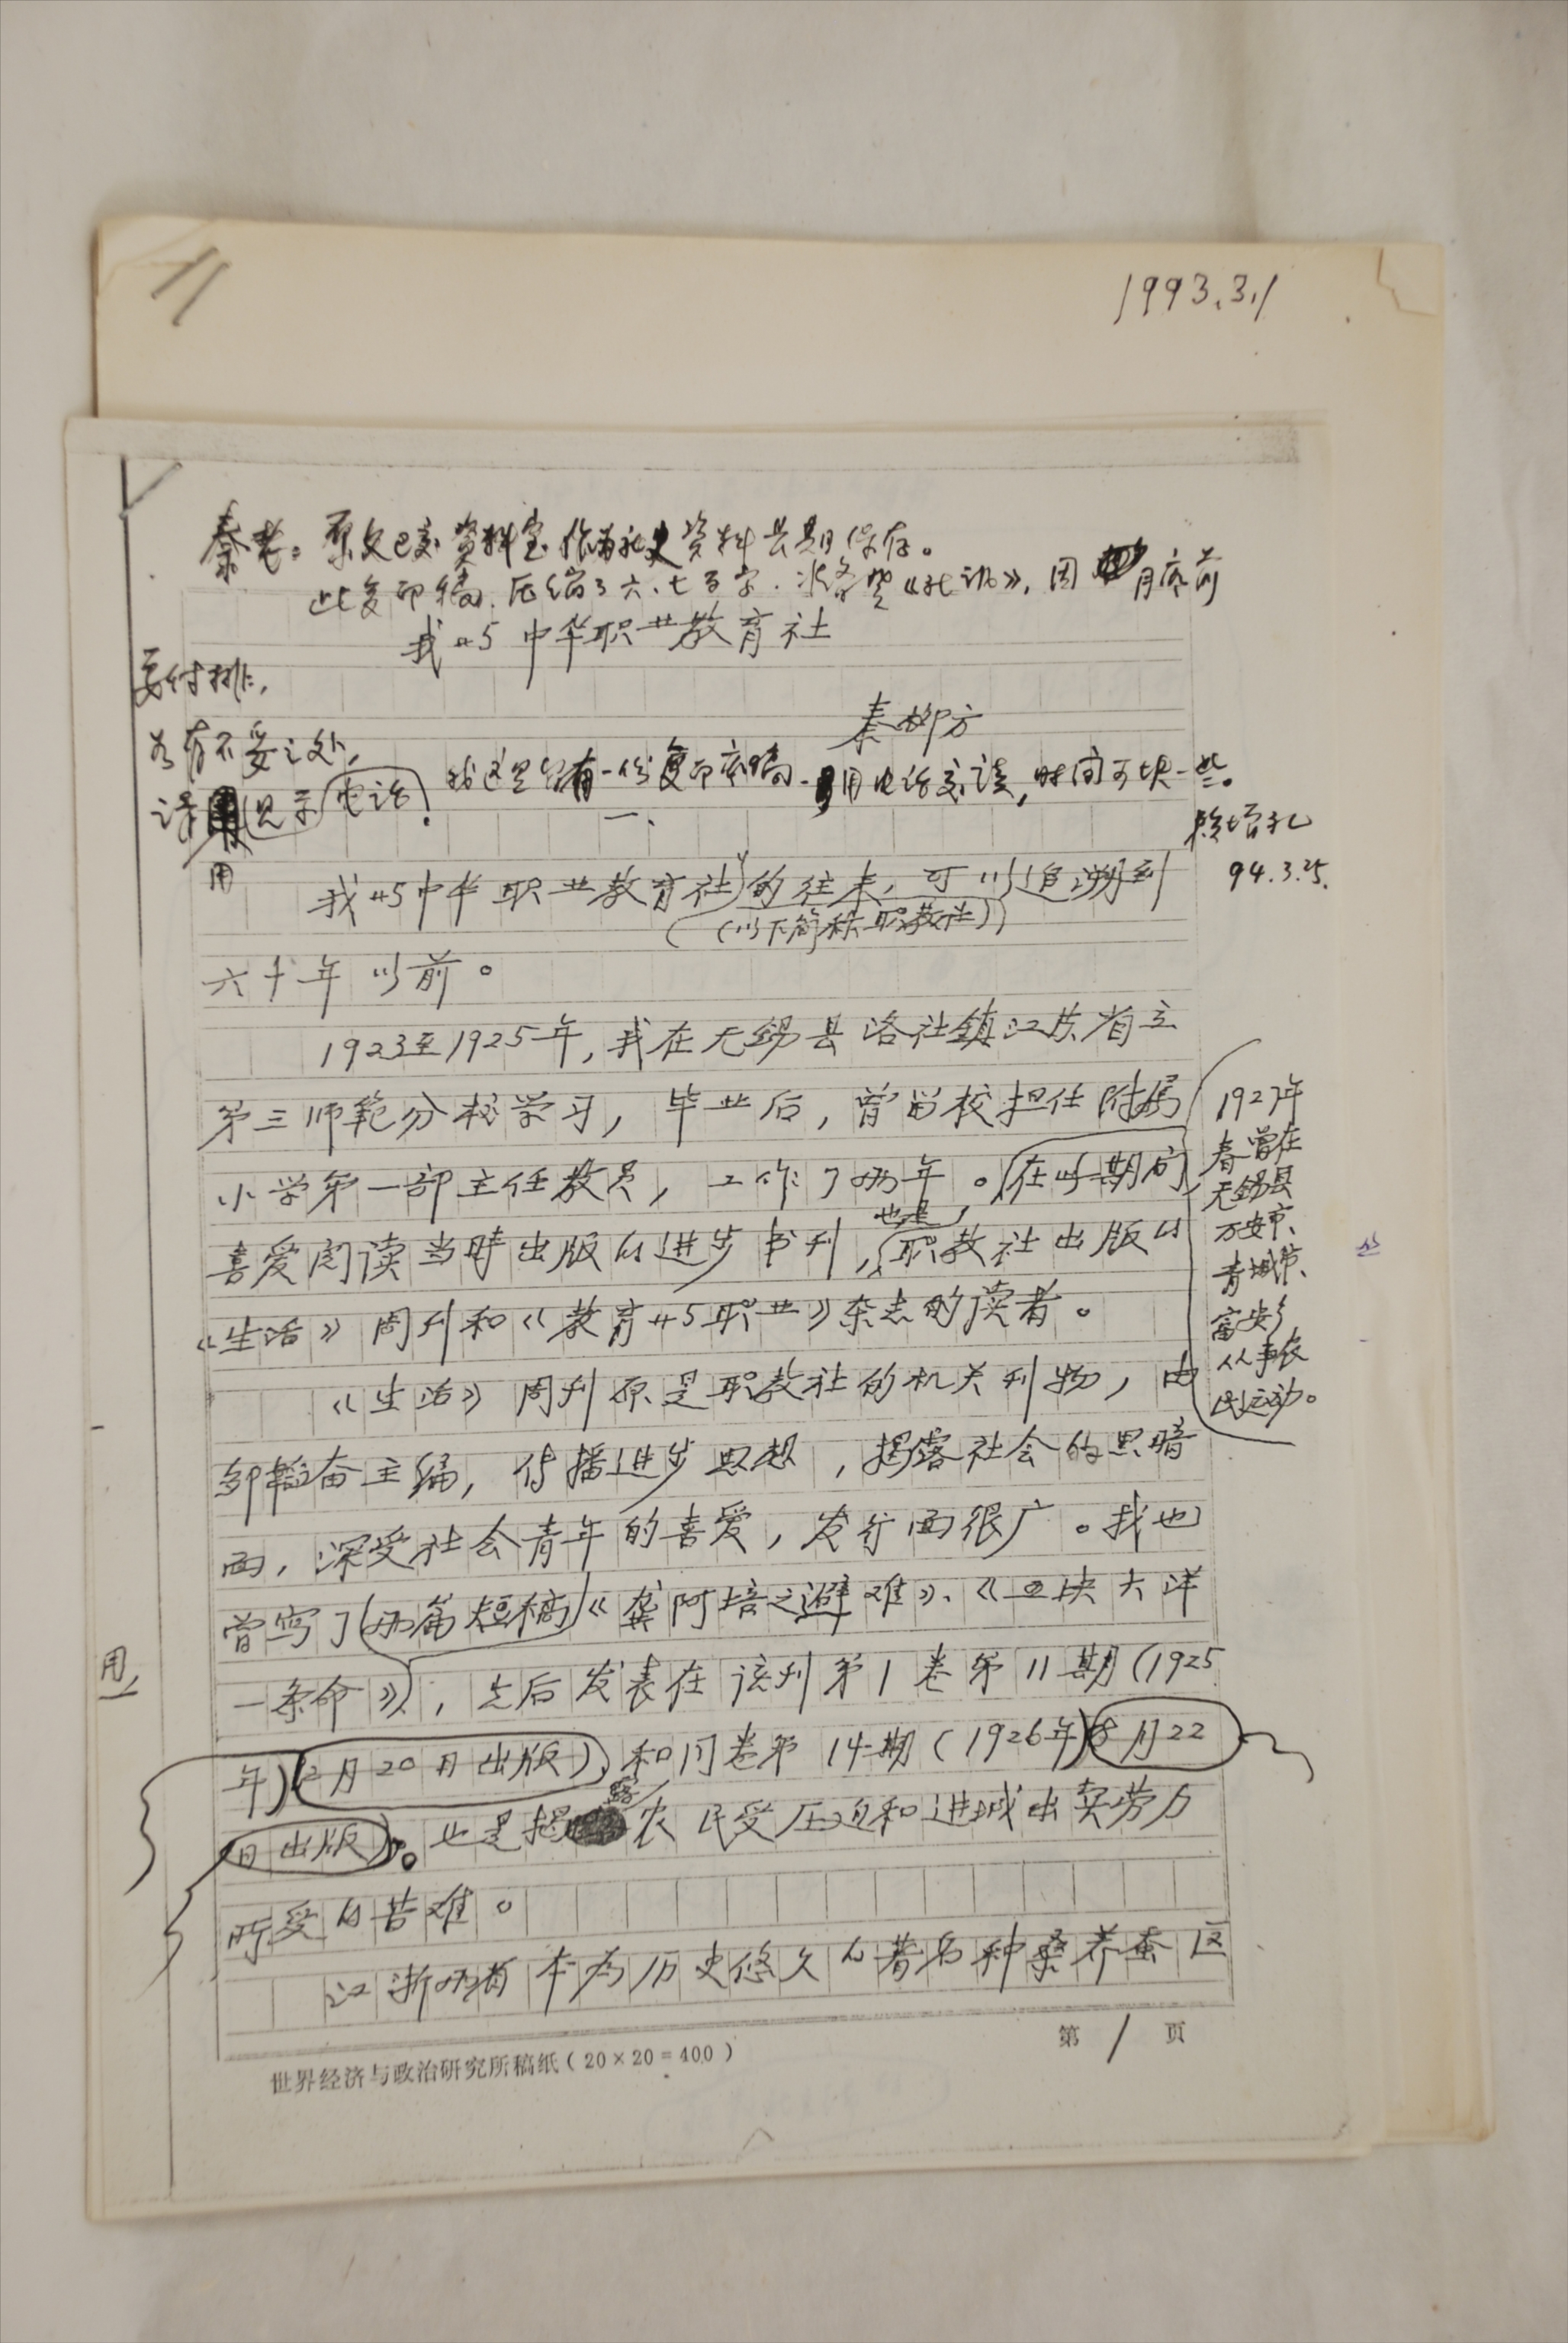 1993.3.1
秦老:原文已交资料室作为社史资料长期保存。
此复印稿,压缩了六、七百字.准备登《社讯》,因 月底前
我与中华职业教育社
要付排,
秦柳方
若有不妥之处,
我这里留有一份复印底稿.用电话交谈,时间可快一些。
请用电话见示!
一.
94.3.25.
我与中华职业教育社的往来,可以追溯到
(以下简称职教社)
六十年以前。
1923至1925年,我在无锡县洛社镇江苏省立
第三师范分校学习,毕业后,曾留校担任附属
小学第一部主任教员,工作了两年。在此期间
1927年
春曾在
无锡县
万安市、
青城市、
富安乡
从事农
民运动。
也是
喜爱阅读当时出版的进步书刊,职教社出版的
《生活》周刊和《教育与职业》杂志的读者。
《生活》周刊原是职教社的机关刊物,由
邹韬奋主编,传播进步思想,揭露社会的黑暗
面,深受社会青年的喜爱,发行面很广。我也
曾写了两篇短稿《龚阿培之避难》、《五块大洋
用
一条命》,先后发表在该刊第1卷第11期(1925
年)12月20日出版)和同卷第14期(1926年)8月22
日出版)。也是揭露农民受压迫和进城出卖劳力
所受的苦难。
江浙两省本为历史悠久的著名种桑养蚕区
世界经济与政治研究所稿纸(20×20=400)
第 1 页